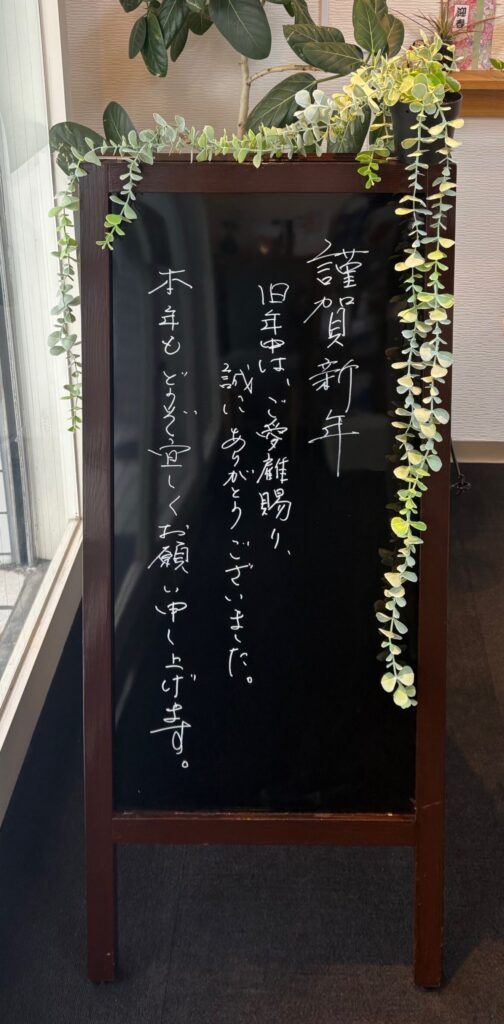 謹賀新年
旧年中は、ご愛顧賜り、
誠に ありがとうございました。
本年も どうぞ宜しくお願い申し上げます。
迎春